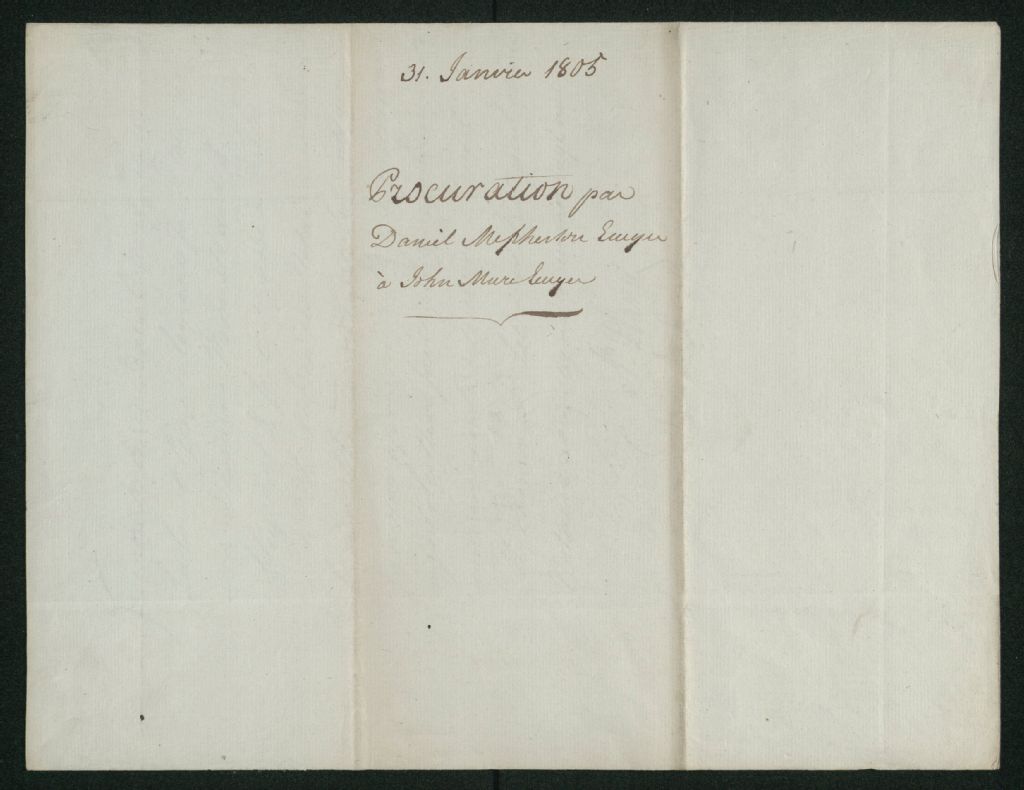 31. Janvier 1805
Procuration par
Daniel Mcpherson Ecuyer
à John Mure Ecuyer